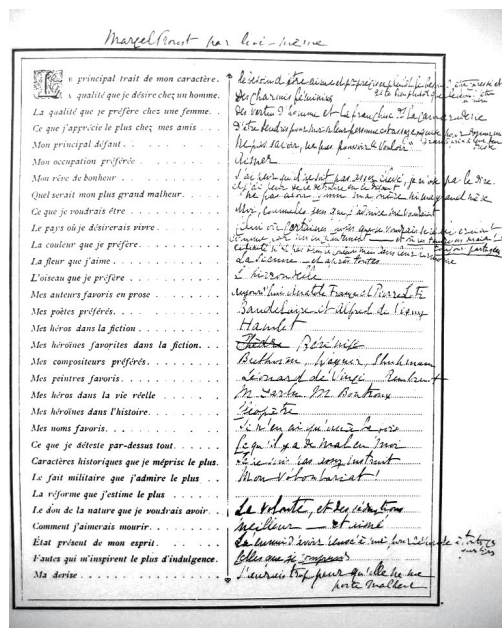 Marcel Proust par lui-même
Le principal trait de mon caractère. Le besoin d'être aimé et pour préciser
La qualité que je désire chez un homme. Des charmes féminins
La qualité que je préfère chez une femme. Des vertus d'homme et la franchise dans la camaraderie
Ce que j'apprécie le plus chez mes amis . . . D'être tendres pour moi
Mon principal défaut. Ne pas savoir, ne pas pouvoir "vouloir"
Mon occupation préférée Aimer
Mon rêve de bonheur J'ai peur qu'il ne soit pas assez élevé, je n'ose pas le dire
Quel serait mon plus grand malheur. ne pas avoir connu ma mère ni ma grand'mère
Ce que je voudrais être Moi, comme les gens que j'admire me voudraient
Le pays où je désirerais vivre.
La couleur que je préfère.
La fleur que j'aime La sienne — et après, toutes
L'oiseau que je préfère L'hirondelle
Mes auteurs favoris en prose Aujourd'hui Anatole France et Pierre Loti
Mes poètes préférés. Baudelaire et Alfred de Vigny
Mes héros dans la fiction. Hamlet
Mes héroïnes favorites dans la fiction. Phèdre Bérénice
Mes compositeurs préférés. Beethoven, Wagner, Shuhmann
Mes peintres favoris Léonard de Vinci, Rembrandt
Mes héros dans la vie réelle M. Darlu, M. Boutroux
Mes héroïnes dans l'histoire. Cléopâtre
Mes noms favoris. Je n'en ai qu'un à la fois
Ce que je déteste par-dessus tout. Ce qu'il y a de mal en moi
Caractères historiques que je méprise le plus. Je ne suis pas assez instruit
Le fait militaire que j'admire le plus Mon volontariat!
La réforme que j'estime le plus
Le don de la nature que je voudrais avoir. La volonté, et des séductions
Comment j'aimerais mourir. Meilleur — et aimé
État présent de mon esprit. L'ennui d'avoir pensé à moi pour répondre à toutes ces questions
Fautes qui m'inspirent le plus d'indulgence. Celles que je comprends
Ma devise J'aurais trop peur qu'elle ne me
porte malheur